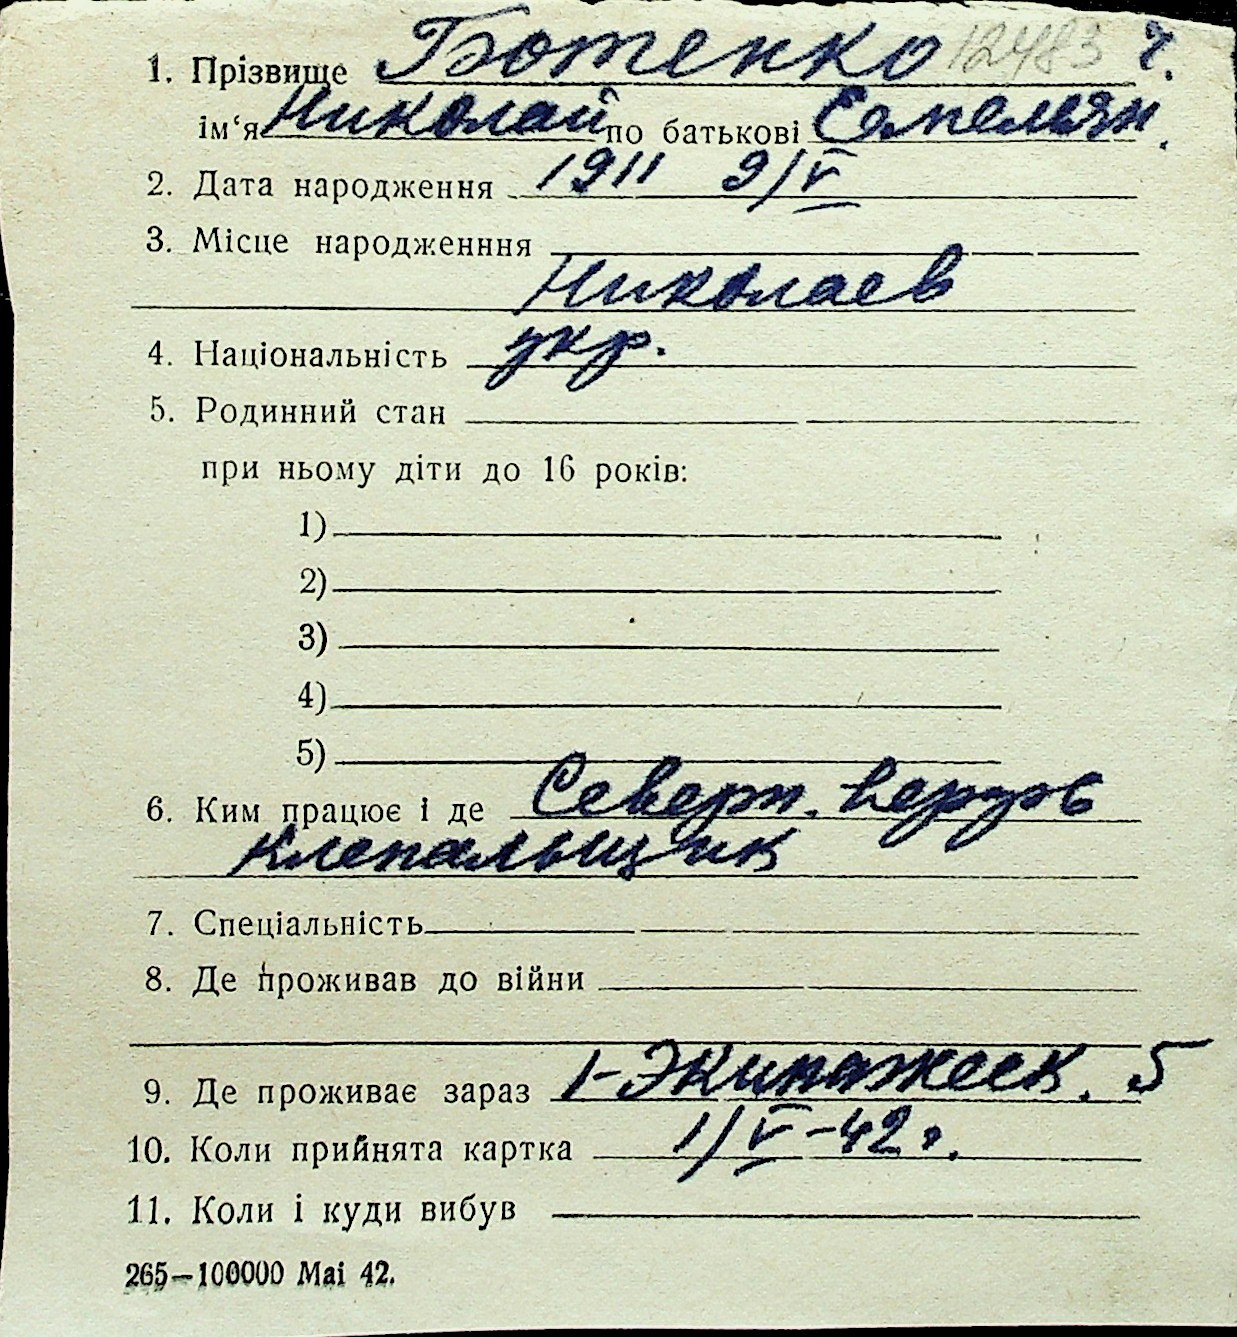 1. Прізвище Ботенко 12483 г.
ім'я Николай по батькові Емельян.
2. Дата народження 1911 9/V
3. Місце народженння
Николаев
4. Національність укр.
5. Родинний стан
при ньому діти до 16 років:
1)
2)
3)
4)
5)
6. Ким працює і де Северн. верфь
клепальщик
7. Спеціальність
8. Де проживав до війни
9. Де проживає зараз 1-Экипажеск. 5
10. Коли прийнята картка 1/V-42 г.
11. Коли і куди вибув
265—100000 Mai 42.